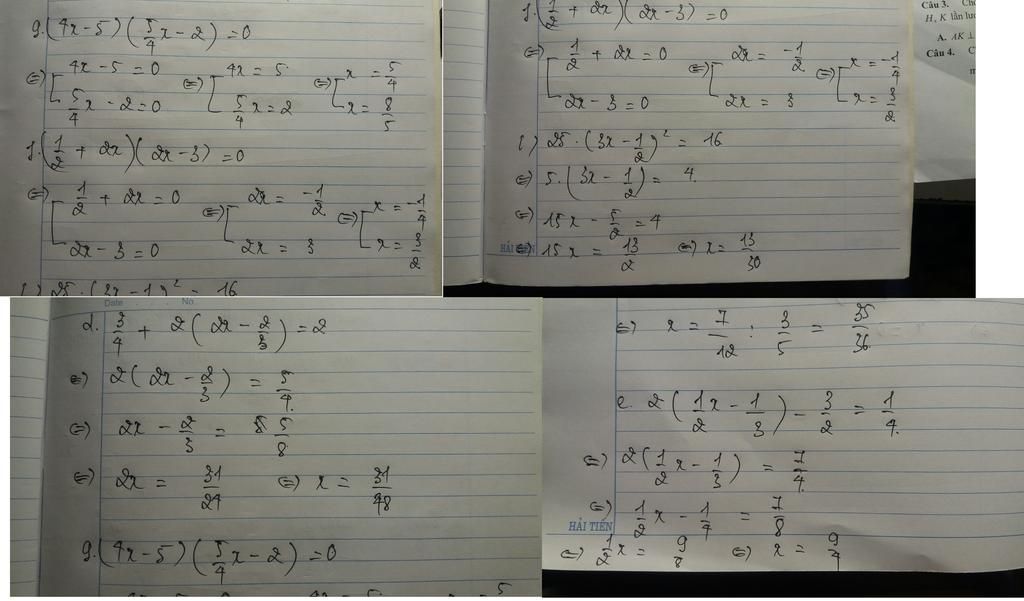 g. (4x-5)(5/4x-2)=0
⇔ [4x-5=0 ⇔ [4x=5 ⇔ [x=5/4
[5/4x-2=0 [5/4x=2 [x=8/5
f. (1/2+2x)(2x-3)=0
⇔ [1/2+2x=0 ⇔ [2x=-1/2 ⇔ [x=-1/4
[2x-3=0 [2x=3 [x=3/2
f. (1/2+2x)(2x-3)=0
⇔ [1/2+2x=0 ⇔ [2x=-1/2 ⇔ [x=-1/4
[2x-3=0 [2x=3 [x=3/2
l) 25.(3x-1/2)²=16
⇔ 5.(3x-1/2)=4.
⇔ 15x-5/2=4
HẢI TIẾN
⇔ 15x=13/2 ⇔ x=13/30
Câu 3. Ch
H, K lần lư
A. AK ⊥
Câu 4. C
m
Date No.
d. 3/4+2(2x-2/3)=2
⇔ 2(2x-2/3)=5/4.
⇔ 2x-2/3=5/8
⇔ 2x=31/24 ⇔ x=31/48
g. (4x-5)(5/4x-2)=0
⇔ x=7/12:3/5=35/36
e. 2(1/2x-1/3)-3/2=1/4.
⇔ 2(1/2x-1/3)=7/4.
⇔ 1/2x-1/4=7/8
HẢI TIẾN
⇔ 1/2x=9/8 ⇔ x=9/4